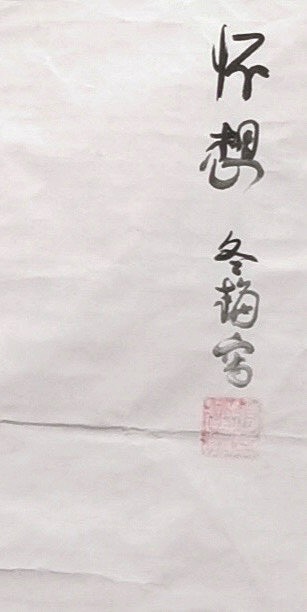 怀想
冬梅写